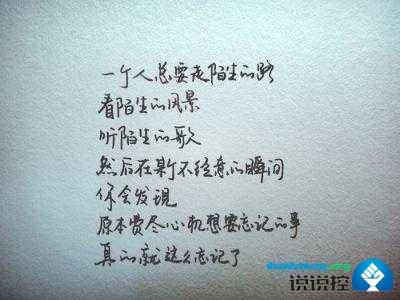 一个人总要走陌生的路
看陌生的风景
听陌生的歌
然后在某个不经意的瞬间
你会发现
原本费尽心机想要忘记的事
真的就这么忘记了
shuoshuokong.org
说说控